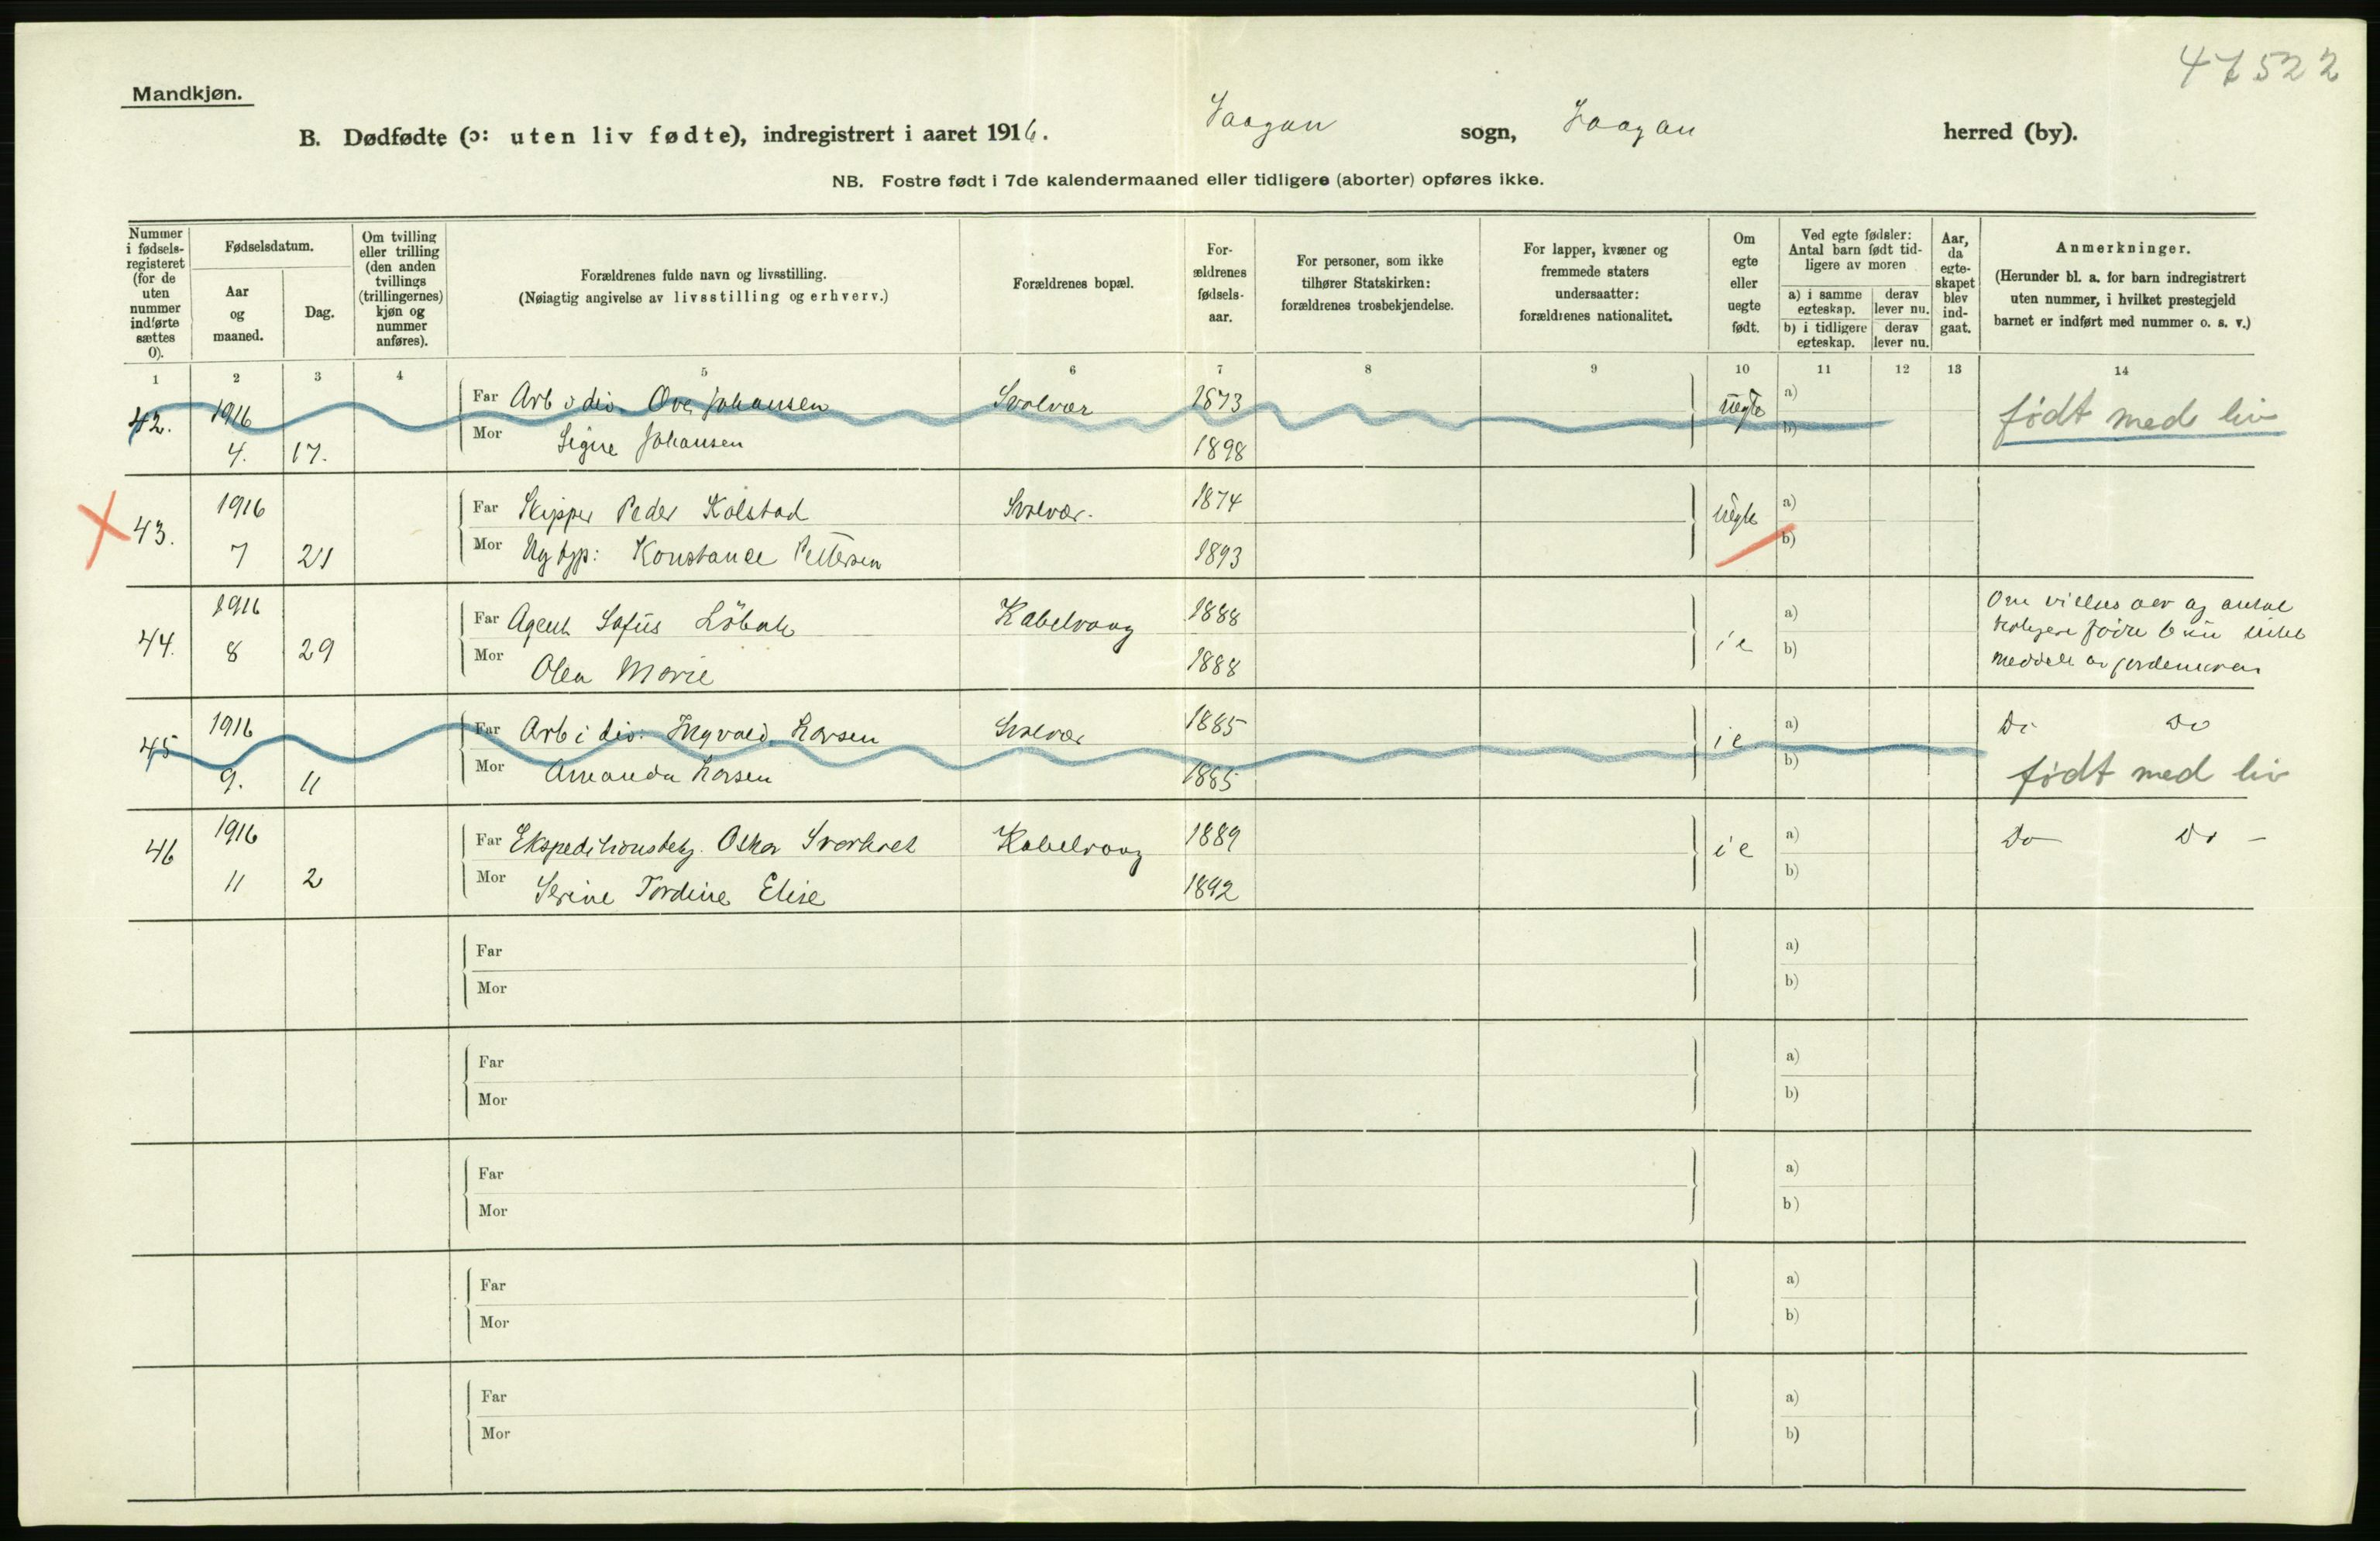 47522
Mandkjøn.
B. Dødfødte (ɔ: uten liv fødte), indregistrert i aaret 1916. Vaagan sogn, Vaagan herred (by).
NB. Fostre født i 7de kalendermaaned eller tidligere (aborter) opføres ikke.
Nummer i fødsels-registeret (for de uten nummer indførte sættes 0).
Fødselsdatum.
Aar og maaned.
Dag.
Om tvilling eller trilling (den anden tvillings (trillingernes) kjøn og nummer anføres).
Forældrenes fulde navn og livsstilling.
(Nøiagtig angivelse av livsstilling og erhverv.)
Forældrenes bopæl.
For-ældrenes fødsels-aar.
For personer, som ikke tilhører Statskirken: forældrenes trosbekjendelse.
For lapper, kvæner og fremmede staters undersaatter: forældrenes nationalitet.
Om egte eller uegte født.
Ved egte fødsler: Antal barn født tid-ligere av moren
a) i samme egteskap.
derav lever nu.
b) i tidligere egteskap.
derav lever nu.
Aar, da egte-skapet blev ind-gaat.
Anmerkninger.
(Herunder bl. a. for barn indregistrert uten nummer, i hvilket prestegjeld barnet er indført med nummer o. s. v.)
1 2 3 4 5 6 7 8 9 10 11 12 13 14
42. 1916 Far Arb i div. Ove Johansen Svolvær 1873 Uegte a) født med liv
4. 17. Mor Signe Johansen 1898 b)
43. 1916 Far Skipper Peder Kolstad Svolvær. 1874 Uegte a)
7 21 Mor Ug typ: Konstanse Pettersen 1893 b)
44. 1916 Far Agent Sofus Løbak Kabelvaag 1888 i e a) Om vielses aar og antal
8 29 Mor Olea Marie 1888 b) tidligere fødte barn
meddelt av jordemoren
45 1916 Far Arb i div. Ingvald Larsen Svolvær 1885 i e a) Do Do
9. 11 Mor Amanda Larsen 1885 b) født med liv
46 1916 Far Ekspeditionsbetj. Oskar Kabelvaag 1889 i e a) Do Do -
11 2 Mor Serine Tordine Elise 1892 b)
Far a)
Mor b)
Far a)
Mor b)
Far a)
Mor b)
Far a)
Mor b)
Far a)
Mor b)